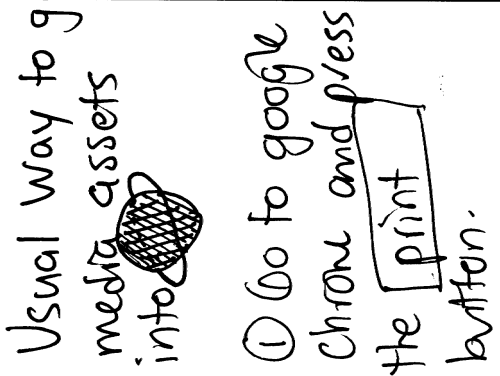 Usual way to g
media assets
into
① Go to google
chrome and press
the print
button.